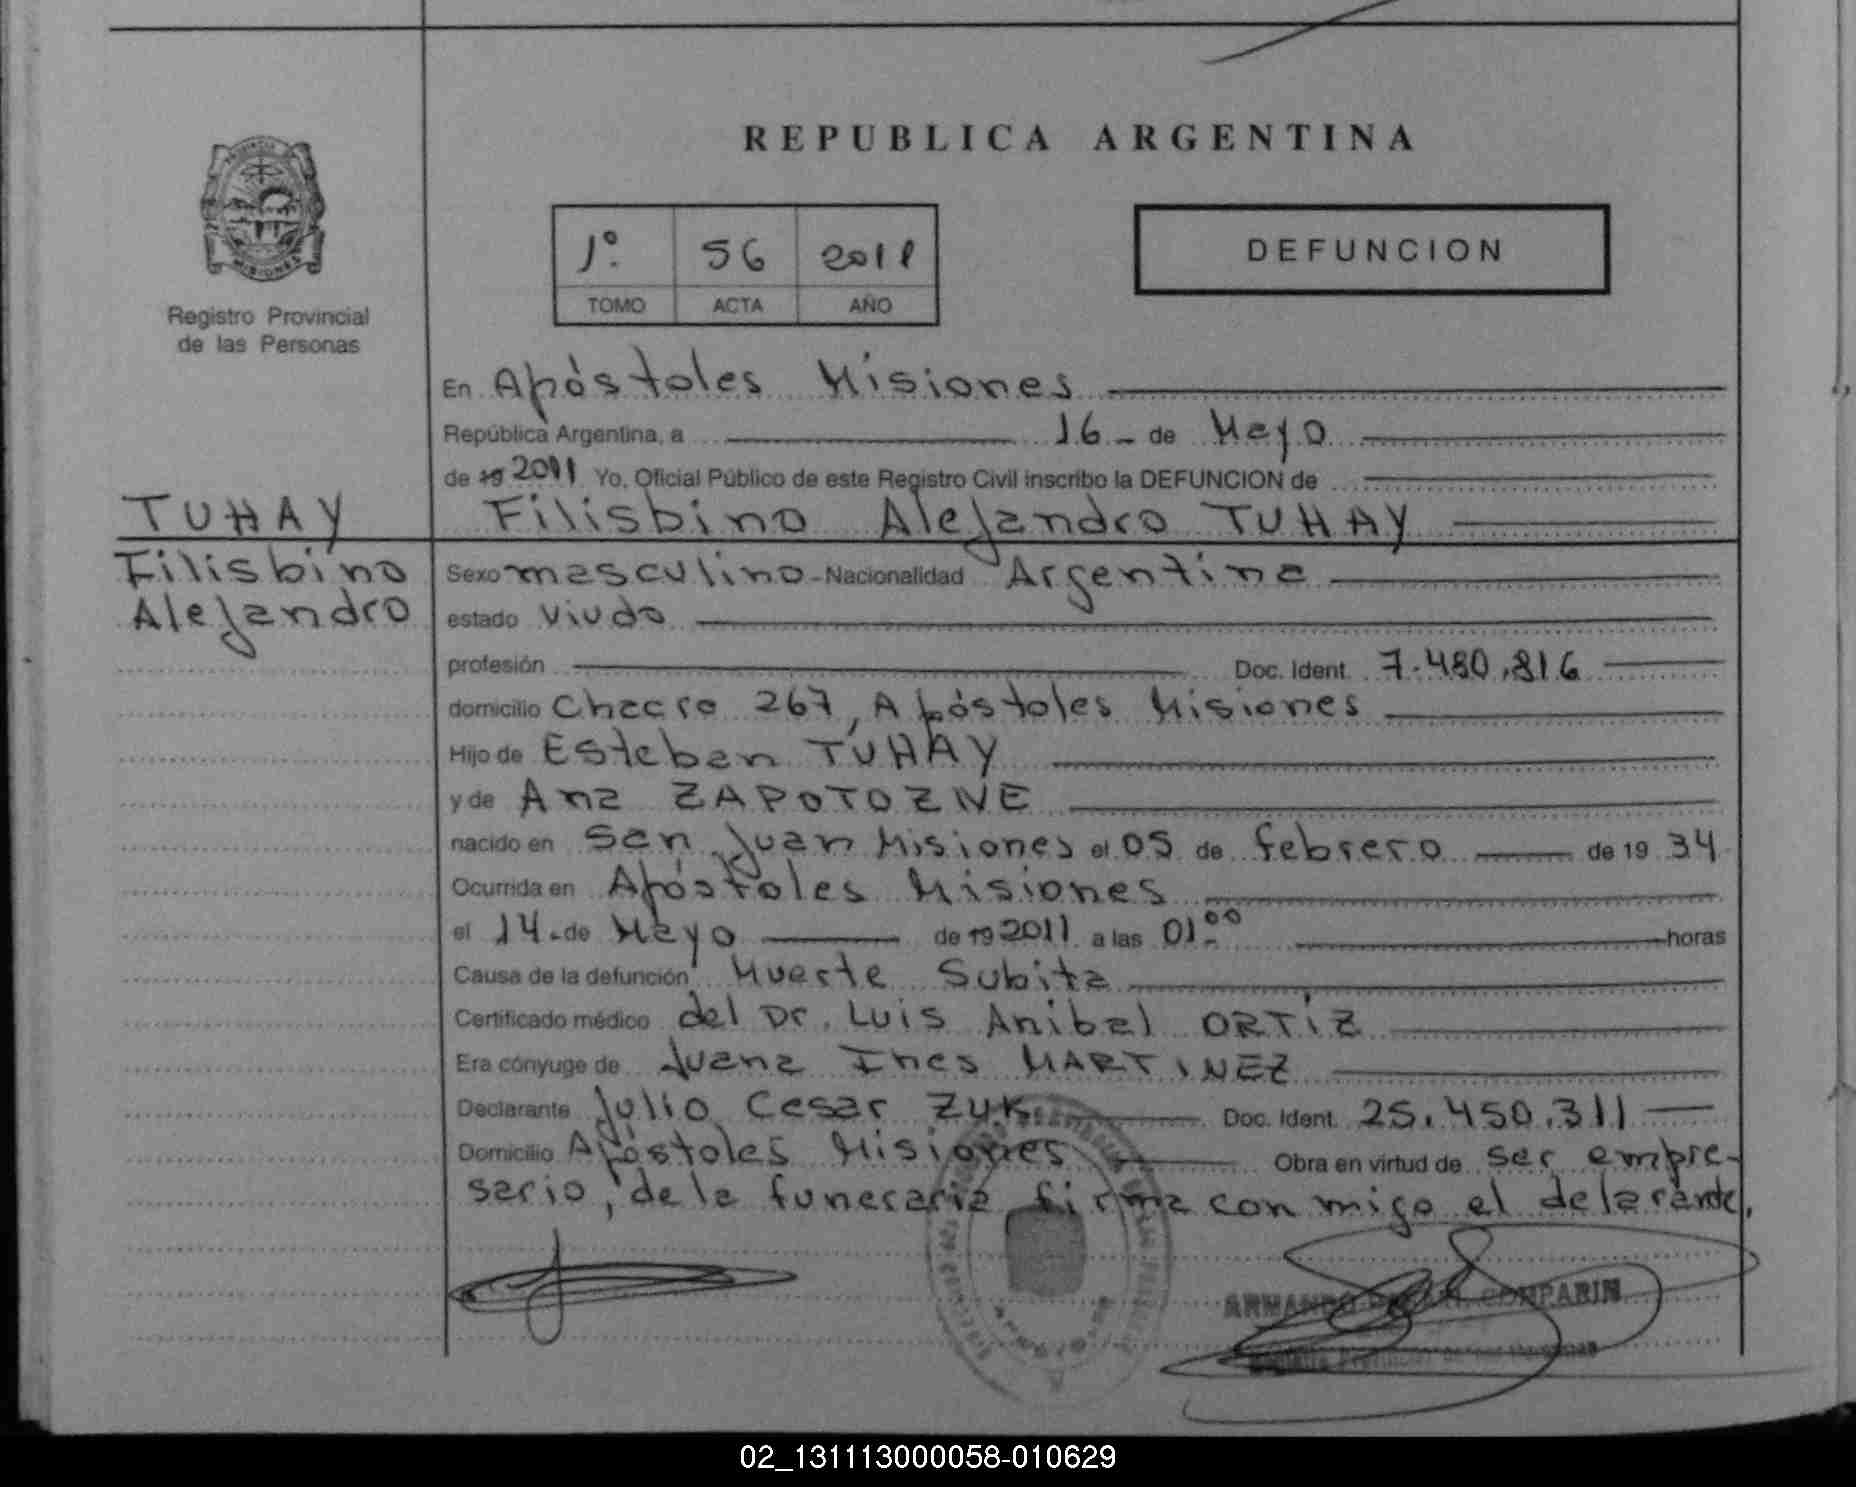 REPUBLICA ARGENTINA
PROVINCIA
MISIONES
Registro Provincial
de las Personas
1º 56 2011
TOMO ACTA AÑO
DEFUNCION
En Apóstoles Misiones
República Argentina, a 16 de Mayo
de 19 2011 Yo, Oficial Público de este Registro Civil inscribo la DEFUNCION de
TUHAY
Filisbino Alejandro TUHAY
Filisbino
Alejandro
Sexo masculino - Nacionalidad Argentina
estado Viudo
profesión Doc. Ident. 7.480.816
domicilio Chacra 267, Apóstoles Misiones
Hijo de Esteban TUHAY
y de Ana ZAPOTOZNE
nacido en San Juan Misiones el 05 de febrero de 19 34
Ocurrida en Apóstoles Misiones
el 14 de Mayo de 19 2011 a las 01:00 horas
Causa de la defunción Muerte Subita
Certificado médico del Dr. Luis Anibal ORTIZ
Era cónyuge de Juana Ines MARTINEZ
Declarante Julio Cesar Zuk Doc. Ident. 25.450.311
Domicilio Apóstoles Misiones Obra en virtud de ser empre-
sario, de la funeraria firma con migo el delarante.
ARMANDO COMPARIN
02_131113000058-010629